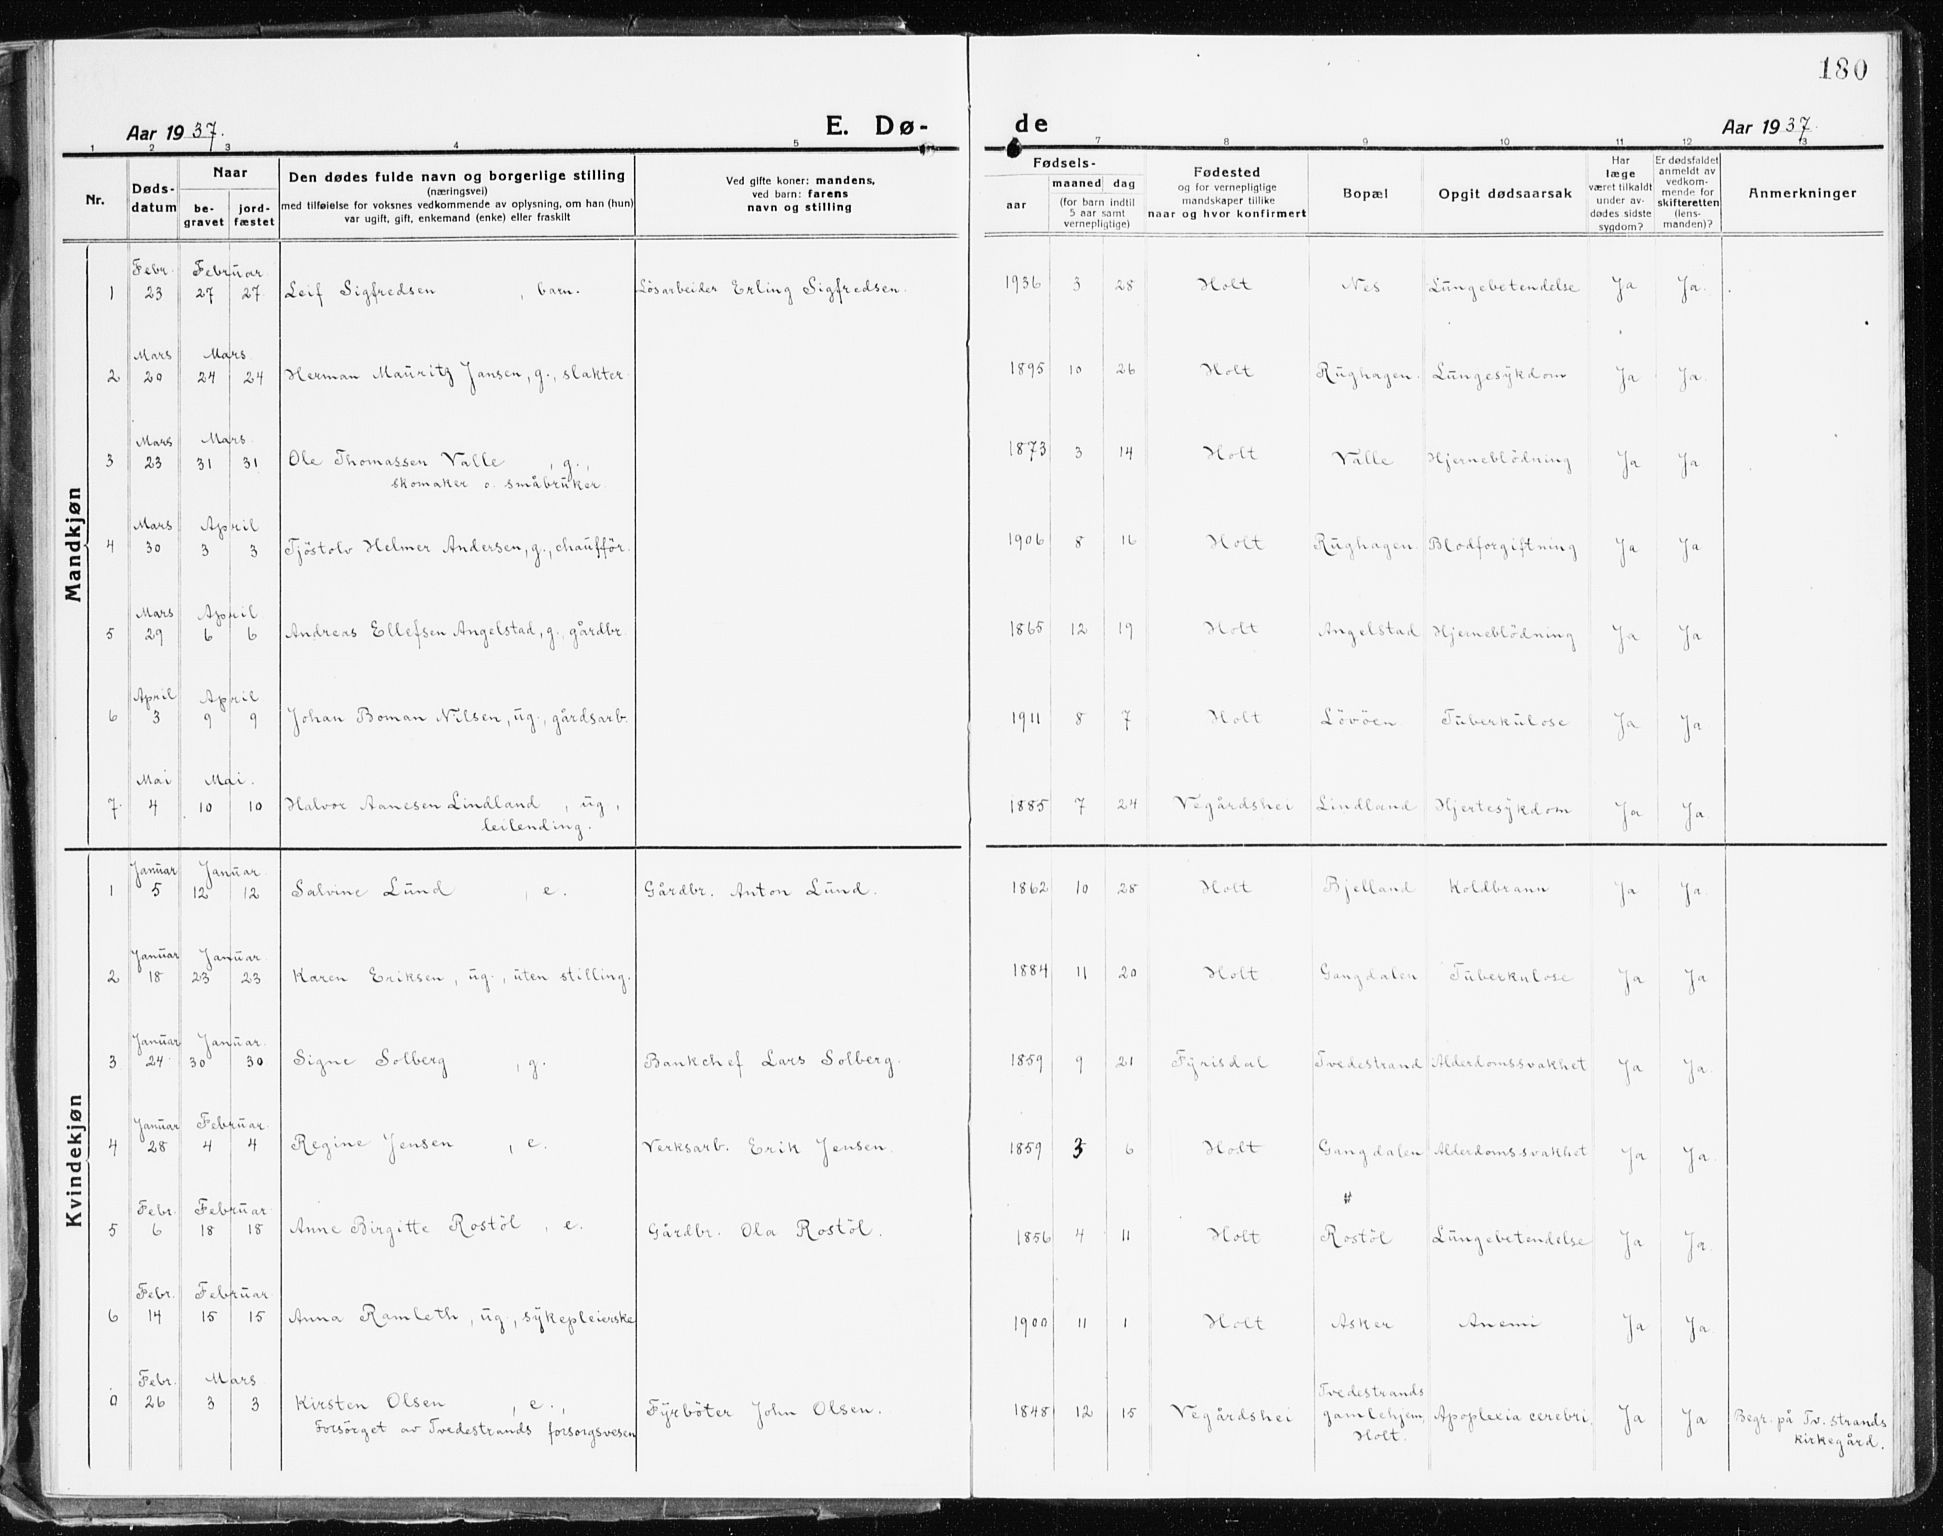 180
Aar 1937.
E. Dø-
de
Aar 1937.
1 2 3 4 5
7 8 9 10 11 12 13
Nr.
Døds-
datum
Naar
be-
gravet
jord-
fæstet
Den dødes fulde navn og borgerlige stilling
(næringsvei)
med tilføielse for voksnes vedkommende av oplysning, om han (hun)
var ugift, gift, enkemand (enke) eller fraskilt
Ved gifte koner: mandens,
ved barn: farens
navn og stilling
Fødsels-
aar
maaned dag
(for barn indtil
5 aar samt
vernepligtige)
Fødested
og for vernepligtige
mandskaper tillike
naar og hvor konfirmert
Bopæl
Opgit dødsaarsak
Har
læge
været tilkaldt
under av-
dødes sidste
sygdom?
Er dødsfaldet
anmeldt av
vedkom-
mende for
skifteretten
(lens-
manden)?
Anmerkninger
Mandkjøn
Febr. Februar.
1 23 27 27 Leif Sigfredsen , barn. Lösarbeider Erling Sigfredsen. 1936 3 28 Holt Nes Lungebetendelse Ja Ja.
Mars Mars.
2 20 24 24 Herman Mauritz Jansen, g., slakter. 1895 10 26 Holt Rughagen. Lungesykdom Ja Ja.
Mars Mars.
3 23 31 31 Ole Thomassen Valle , g., 1873 3 14 Holt Valle Hjerneblödning Ja Ja
skomaker o. småbruker.
Mars April
4 30 3 3 Tjöstolv Helmer Andersen, g., chaufför. 1906 8 16 Holt Rughagen. Blodforgiftning Ja Ja
Mars April
5 29 6 6 Andreas Ellefsen Angelstad, g., gårdbr. 1865 12 19 Holt Angelstad Hjerneblödning Ja Ja
April April
6 3 9 9 Johan Boman Nilsen, ug., gårdsarb. 1911 8 7 Holt Lövöen Tuberkulose Ja Ja
Mai Mai.
7. 4 10 10 Halvor Aanesen Lindland , ug., 1885 7 24 Vegårdshei Lindland Hjertesykdom Ja Ja.
leilending.
Kvindekjøn
Januar Januar.
1 5 12 12 Salvine Lund , e. Gårdbr. Anton Lund. 1862 10 28 Holt Bjelland Koldbrann Ja Ja.
Januar Januar.
2 18 23 23 Karen Eriksen, ug., uten stilling. 1884 11 20 Holt Gangdalen Tuberkulose Ja Ja
Januar Januar.
3 24 30 30 Signe Solberg , g. Bankchef Lars Solberg. 1859 9 21 Fyrisdal Tvedestrand Alderdomssvakhet Ja Ja.
Januar Februar.
4 28 4 4 Regine Jensen , e. Verksarb. Erik Jensen. 1859 3 6 Holt Gangdalen Alderdomssvakhet Ja Ja.
Febr. Februar.
5 6 18 18 Anne Birgitte Rostöl , e. Gårdbr. Ola Rostöl. 1856 4 11 Holt Rostöl Lungebetendelse Ja Ja.
Febr. Februar.
6 14 15 15 Anna Ramleth, ug., sykepleierske 1900 11 1 Holt Asker Anemi Ja Ja.
Febr. Mars.
0 26 3 3 Kirsten Olsen , e., Fyrböter John Olsen. 1848 12 15 Vegårdshei Tvedestrands gamlehjem, Holt. Apoplexia cerebri. Ja Ja Begr. på Tv.strands kirkegård.
Forsörget av Tvedestrands forsorgsvesen